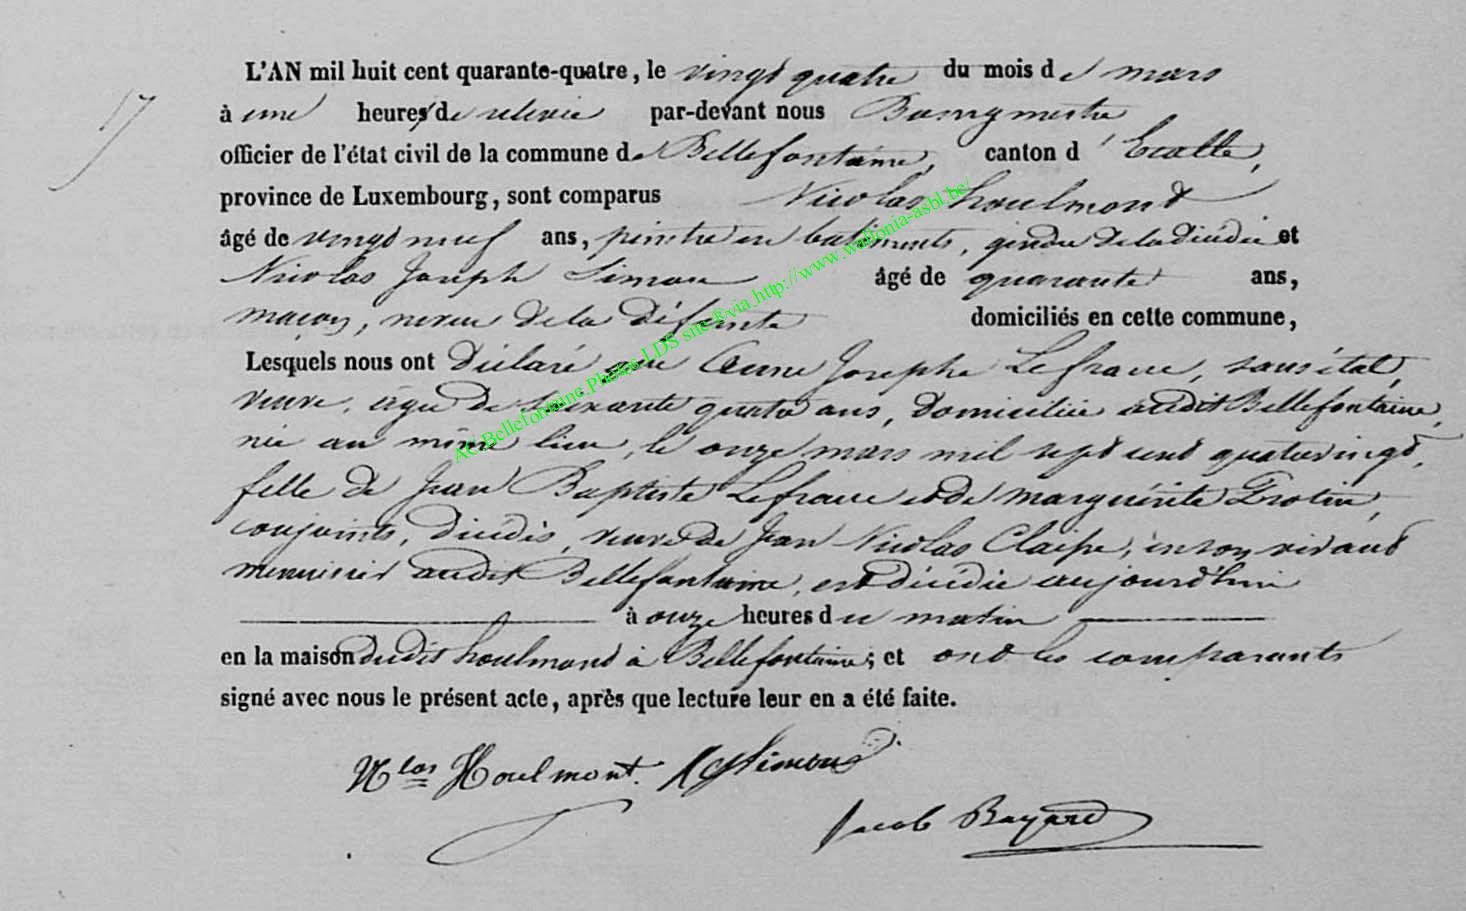 17
L'AN mil huit cent quarante-quatre, le vingt quatre du mois de mars
à une heures de relevée par-devant nous Bourgmestre
officier de l'état civil de la commune de Bellefontaine, canton d'Etalle,
province de Luxembourg, sont comparus Nicolas houlmont
âgé de vingt neuf ans, peintre en batiments, gendre de la décédée et
Nicolas Joseph Simon âgé de quarante ans,
maçon, neveu de la défunte domiciliés en cette commune,
Lesquels nous ont Déclaré que Anne Josephe Lefranc, sans état,
veuve, agée de soixante quatre ans, domiciliée audit Bellefontaine,
née au même lieu, le onze mars mil sept cent quatrevingt,
fille de Jean Baptiste Lefranc et de marguerite Frotin,
conjoints, décédés, veuve de Jean Nicolas Claisse, en son vivant
menuisier audit Bellefontaine, est décédée aujourd'hui
à onze heures du matin
en la maison dudit houlmont à Bellefontaine; et ont les comparants
signé avec nous le présent acte, après que lecture leur en a été faite.
Nlas Houlmont. NJSimon
Jacob Bayard
AC Bellefontaine Photos LDS site & via http://www.wallonia-asbl.be/